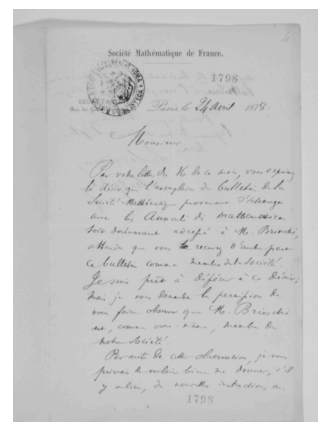 Société Mathématique de France.
1798
Paris le 24 avril 1878
Monsieur
Par votre lettre du de ce mois, vous exprimez
le désir que l'exemplaire du bulletin de la
Société Mathém provenant d'échange
avec les Annali di mathematica
soit dorénavant adressé à Mr. Brioschi,
attendu que vous recevez d'autre part
ce bulletin comme membre de la Société.
Je suis prêt à déférer à ce désir,
mais je vous demande la permission de
vous faire observer que Mr. Brioschi
est, comme vous même, membre de
notre Société.
Par suite de cette observation, je vous
prierais de vouloir bien me donner, s'il
y a lieu, de nouvelles instructions au
1798